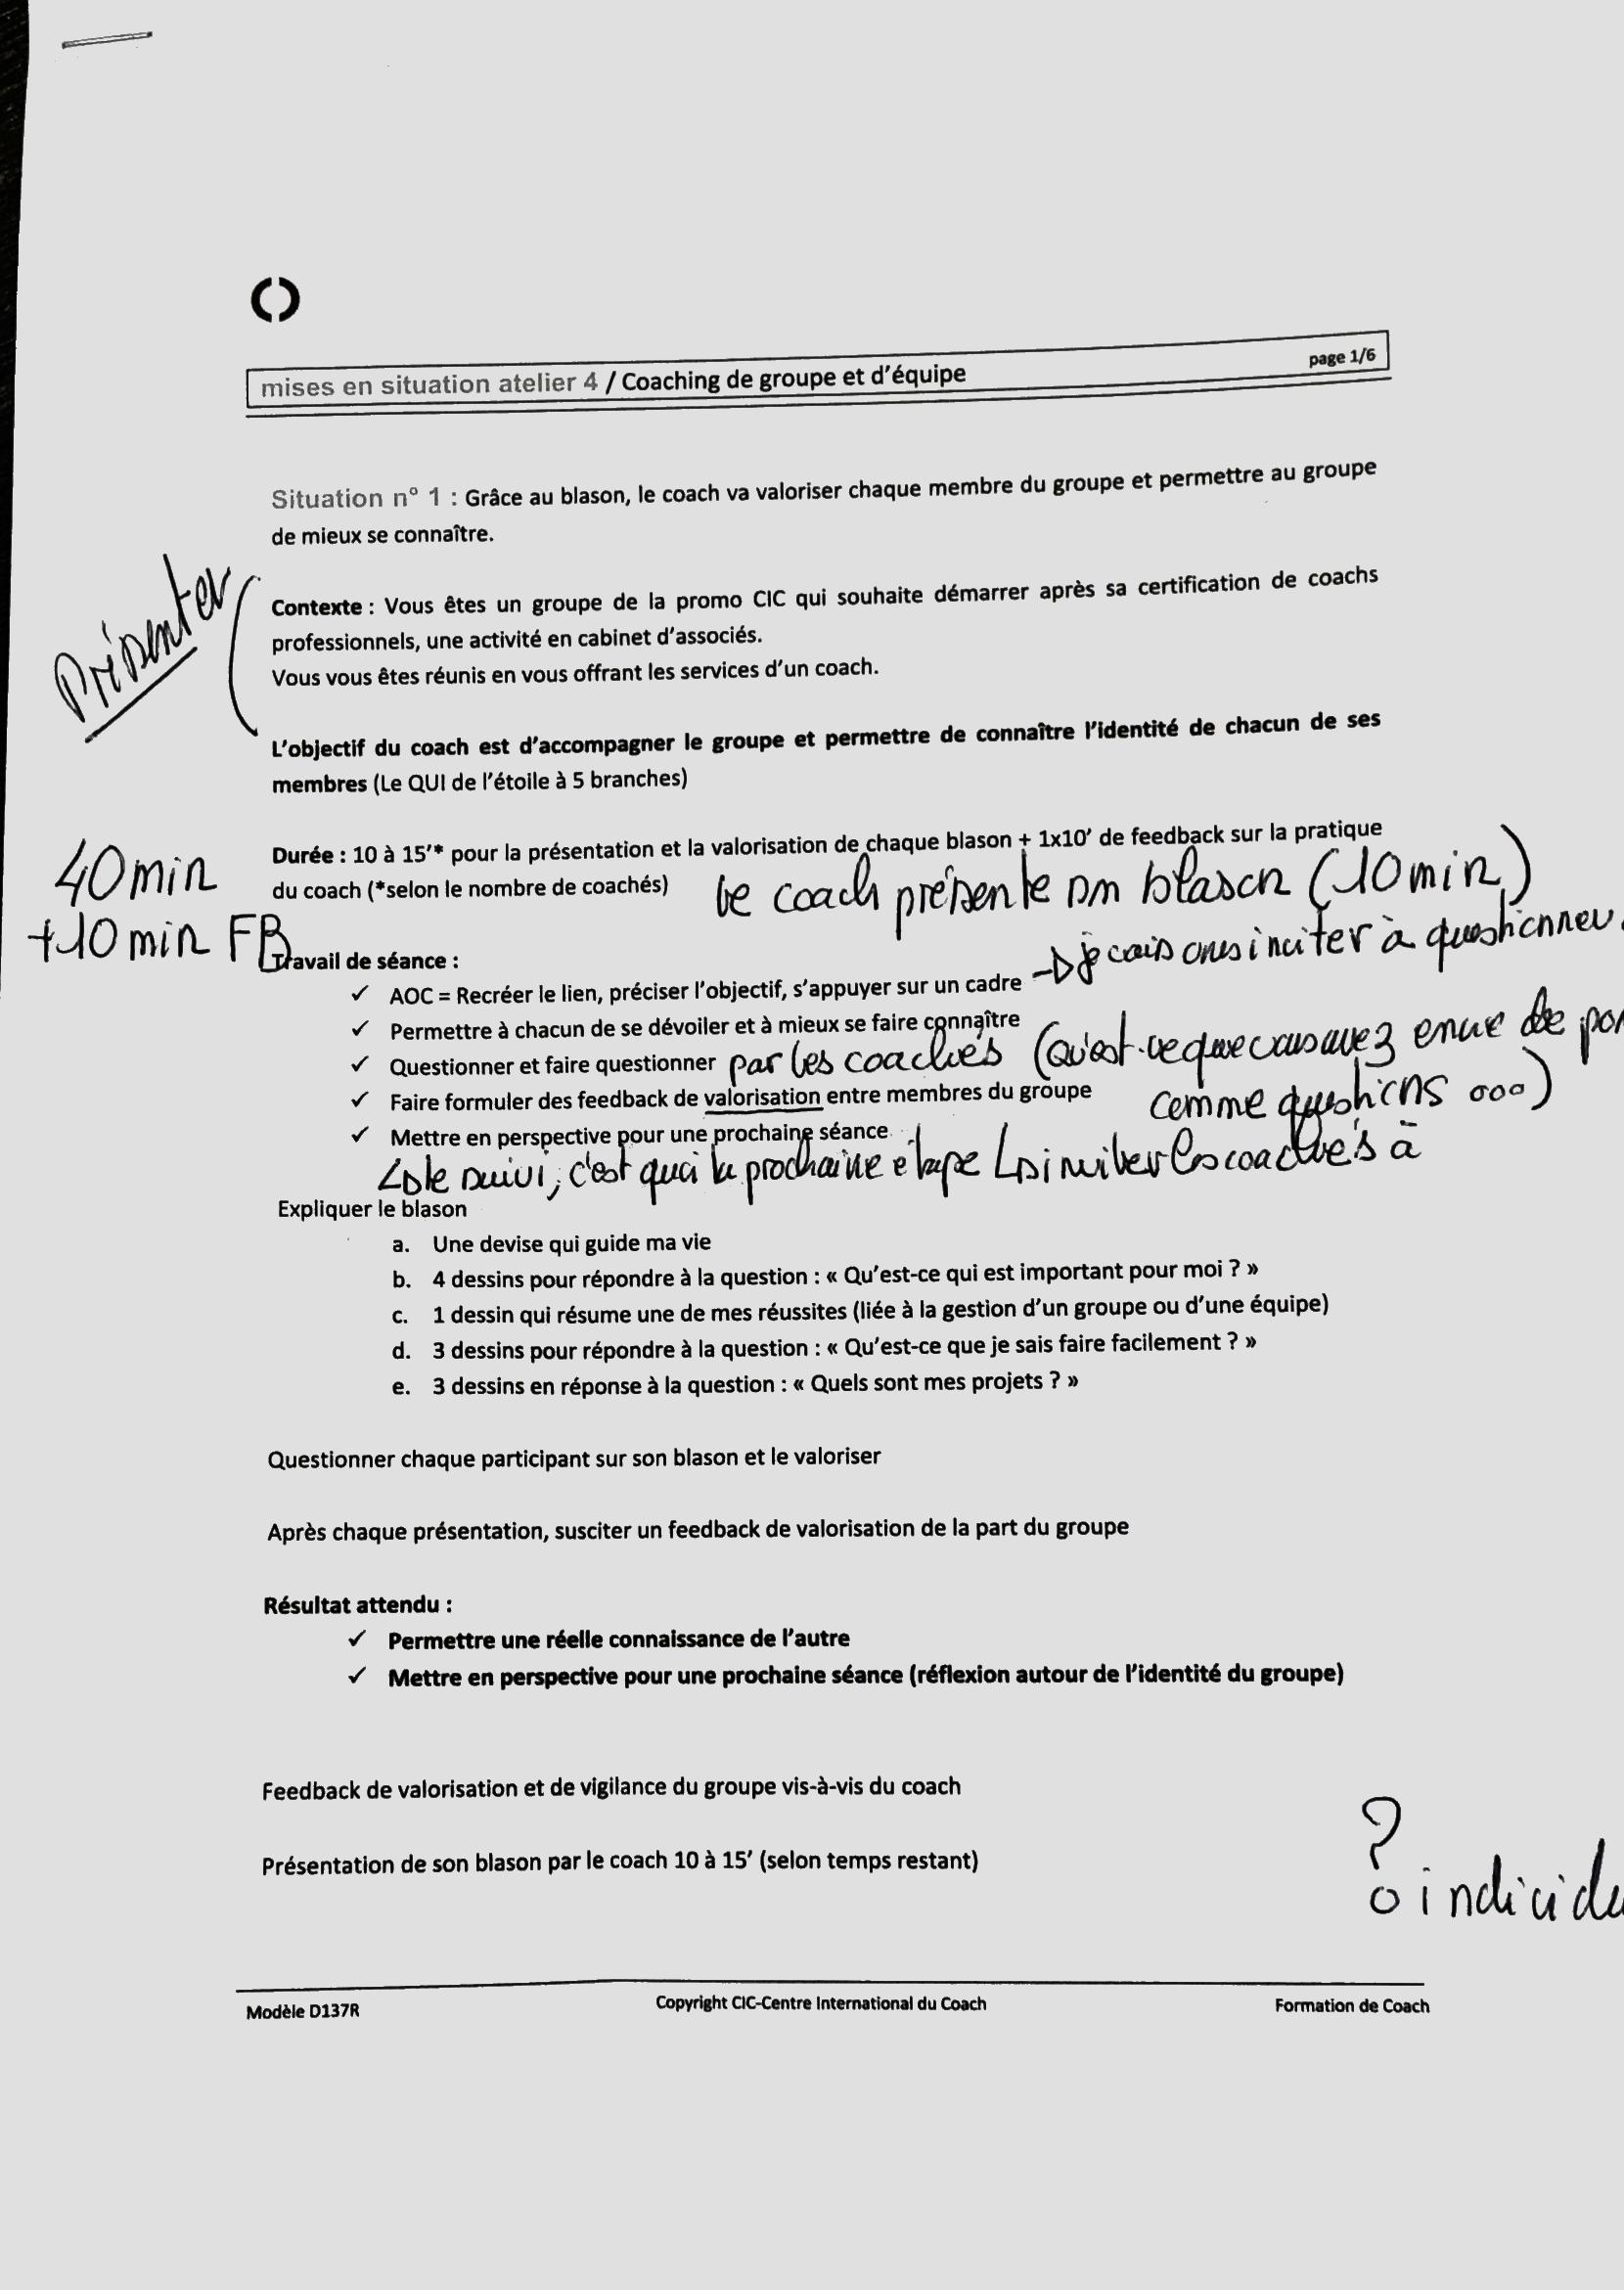 mises en situation atelier 4 / Coaching de groupe et d’équipe
page 1/6
Situation n° 1 : Grâce au blason, le coach va valoriser chaque membre du groupe et permettre au groupe
de mieux se connaître.
Présenter
Contexte : Vous êtes un groupe de la promo CIC qui souhaite démarrer après sa certification de coachs
professionnels, une activité en cabinet d’associés.
Vous vous êtes réunis en vous offrant les services d’un coach.
L’objectif du coach est d’accompagner le groupe et permettre de connaître l’identité de chacun de ses
membres (Le QUI de l’étoile à 5 branches)
Durée : 10 à 15’* pour la présentation et la valorisation de chaque blason + 1x10’ de feedback sur la pratique
du coach (*selon le nombre de coachés)
40 min
+10 min FB
le coach présente son blason (10 min)
Travail de séance :
→ je vais vous inciter à questionner
✓ AOC = Recréer le lien, préciser l’objectif, s’appuyer sur un cadre
✓ Permettre à chacun de se dévoiler et à mieux se faire connaître
✓ Questionner et faire questionner par les coachés (Qu'est-ce que vous avez envie de
✓ Faire formuler des feedback de valorisation entre membres du groupe
comme questions ...)
✓ Mettre en perspective pour une prochaine séance
↳ le suivi, c'est quoi la prochaine étape ↳ inviter les coachés à
Expliquer le blason
a. Une devise qui guide ma vie
b. 4 dessins pour répondre à la question : « Qu’est-ce qui est important pour moi ? »
c. 1 dessin qui résume une de mes réussites (liée à la gestion d’un groupe ou d’une équipe)
d. 3 dessins pour répondre à la question : « Qu’est-ce que je sais faire facilement ? »
e. 3 dessins en réponse à la question : « Quels sont mes projets ? »
Questionner chaque participant sur son blason et le valoriser
Après chaque présentation, susciter un feedback de valorisation de la part du groupe
Résultat attendu :
✓ Permettre une réelle connaissance de l’autre
✓ Mettre en perspective pour une prochaine séance (réflexion autour de l’identité du groupe)
Feedback de valorisation et de vigilance du groupe vis-à-vis du coach
Présentation de son blason par le coach 10 à 15’ (selon temps restant)
?
Modèle D137R
Copyright CIC-Centre International du Coach
Formation de Coach